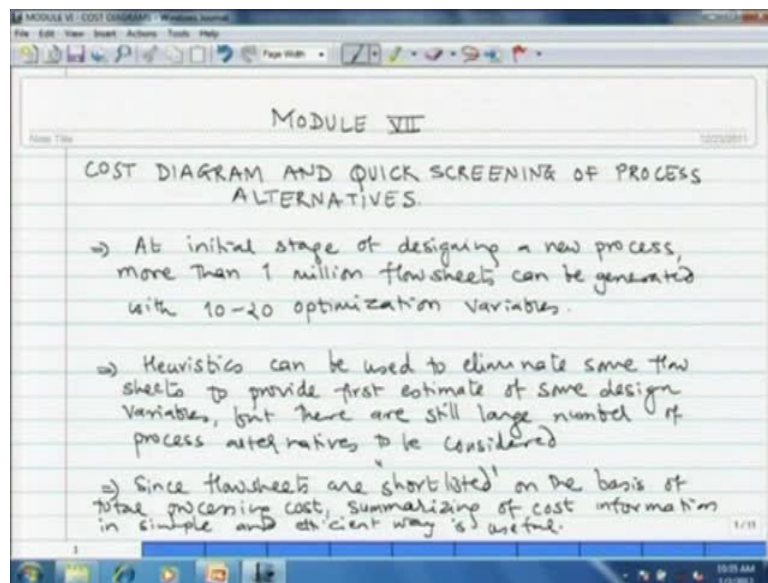 MODULE VI - COST DIAGRAMS - Windows Journal
File Edit View Insert Actions Tools Help
Page Width
MODULE VII
Note Title
12/23/2011
COST DIAGRAM AND QUICK SCREENING OF PROCESS
ALTERNATIVES.
=> At initial stage of designing a new process,
more than 1 million flowsheets can be generated
with 10-20 optimization variables.
=> Heuristics can be used to eliminate some flow
sheets to provide first estimate of some design
variables, but there are still large number of
process alternatives to be considered
=> Since flowsheets are "shortlisted" on the basis of
total processing cost, summarizing of cost information
in simple and efficient way is useful.
1/11
1
10:35 AM
1/3/2012